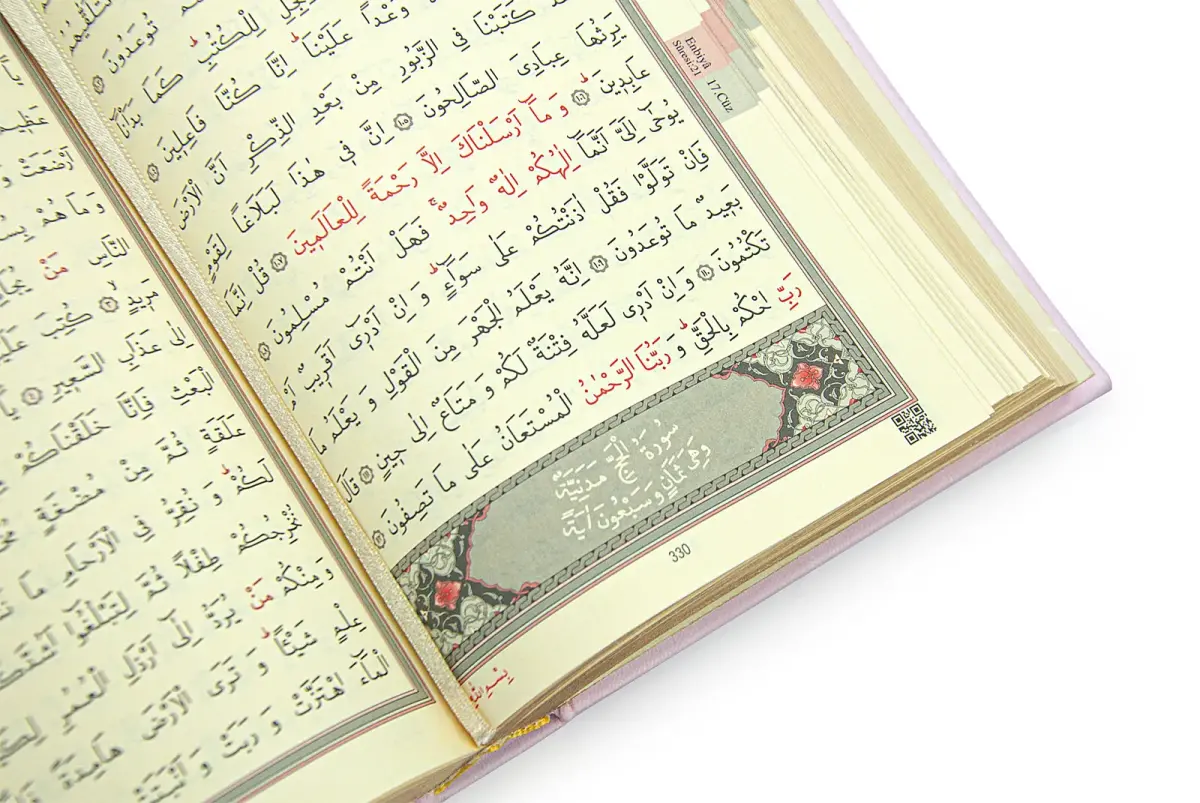 تُوعَدُونَ
لِلْكُتُبِ كَمَا بَدَأْنَا
وَعْدًا عَلَيْنَا اِنَّا كُنَّا فَاعِل۪ينَ
كَتَبْنَا فِي الزَّبُورِ مِنْ بَعْدِ الذِّكْرِ اَنَّ الْاَرْضَ
يَرِثُهَا عِبَادِيَ الصَّالِحُونَ ﴿١٠٥﴾ اِنَّ ف۪ي هٰذَا لَبَلَاغًا لِقَوْمٍ
عَابِد۪ينَ ﴿١٠٦﴾ وَمَٓا اَرْسَلْنَاكَ اِلَّا رَحْمَةً لِلْعَالَم۪ينَ ﴿١٠٧﴾ قُلْ اِنَّمَا
يُوحٰٓى اِلَيَّ اَنَّمَٓا اِلٰهُكُمْ اِلٰهٌ وَاحِدٌۚ فَهَلْ اَنْتُمْ مُسْلِمُونَ ﴿١٠٨﴾
فَاِنْ تَوَلَّوْا فَقُلْ اٰذَنْتُكُمْ عَلٰى سَوَٓاءٍ وَاِنْ اَدْر۪ٓي اَقَر۪يبٌ اَمْ
بَع۪يدٌ مَا تُوعَدُونَ ﴿١٠٩﴾ اِنَّهُ يَعْلَمُ الْجَهْرَ مِنَ الْقَوْلِ وَيَعْلَمُ مَا
تَكْتُمُونَ ﴿١١٠﴾ وَاِنْ اَدْر۪ي لَعَلَّهُ فِتْنَةٌ لَكُمْ وَمَتَاعٌ اِلٰى ح۪ينٍ ﴿١١١﴾ قَالَ
رَبِّ احْكُمْ بِالْحَقِّۜ وَرَبُّنَا الرَّحْمٰنُ الْمُسْتَعَانُ عَلٰى مَا تَصِفُونَ ﴿١١٢﴾
سُورَةُ الْحَجِّ مَدَنِيَّةٌ
وَهِيَ ثَمَانٍ وَسَبْعُونَ اٰيَةً
330
Enbiyâ
Sûresi:21
17.Cüz
عَظ۪يمٌ
اَرْضَعَتْ
وَمَا هُمْ
النَّاسِ مَنْ
مَر۪يدٍ ﴿٣﴾ كُتِبَ
اِلٰى عَذَابِ السَّع۪يرِ ﴿٤﴾
الْبَعْثِ فَاِنَّا خَلَقْنَاكُمْ
عَلَقَةٍ ثُمَّ مِنْ مُضْغَةٍ
لَكُمْۜ وَنُقِرُّ فِي الْاَرْحَامِ مَا
نُخْرِجُكُمْ طِفْلًا ثُمَّ لِتَبْلُغُٓوا
وَمِنْكُمْ مَنْ يُرَدُّ اِلٰٓى اَرْذَلِ الْعُمُرِ
عِلْمٍ شَيْـًٔاۜ وَتَرَى الْاَرْضَ هَامِدَةً
الْمَٓاءَ اهْتَزَّتْ وَرَبَتْ وَاَنْبَتَتْ